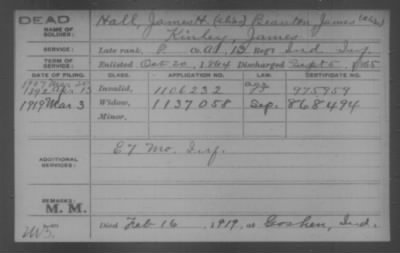 DEAD
NAME OF SOLDIER:
Hall, James H. (alias) Beauton James (alias)
Kinley, James
SERVICE:
Late rank, P Co. A, 13 Reg't Ind. Inf.
TERM OF SERVICE:
Enlisted Oct 20, 1864 Discharged Sept 5, 1865
DATE OF FILING. CLASS. APPLICATION NO. LAW. CERTIFICATE NO.
1907 Mar 20
1892 Apr 13 Invalid, 1106232 975959
1919 Mar 3 Widow, 1137058 Sep. 868494
Minor,
ADDITIONAL SERVICES:
E 7 Mo. Inf.
REMARKS:
M. M.
Died Feb 16, 1919, at Goshen, Ind.